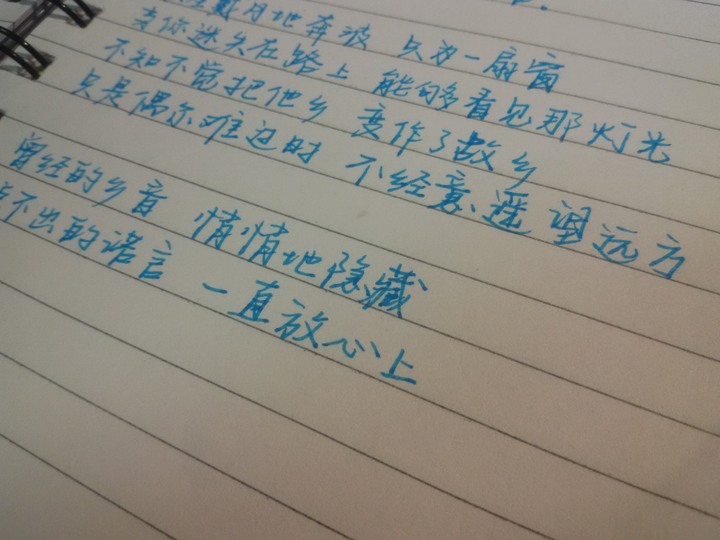 戴月地奔波 只为一扇窗
当你迷失在路上 能够看见那灯光
不知不觉把他乡 变作了故乡
只是偶尔难过时 不经意遥望远方
曾经的乡音 悄悄地隐藏
不出的诺言 一直放心上